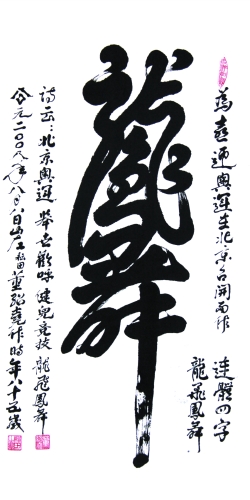 為喜迎奧運在北京召開而作
連體四字
龍飛鳳舞
龍飛鳳舞
詩云：北京奧運舉世歡呼健兒競技龍飛鳳舞
公元二〇〇八年八月八日
董
堯作時年八十五歲